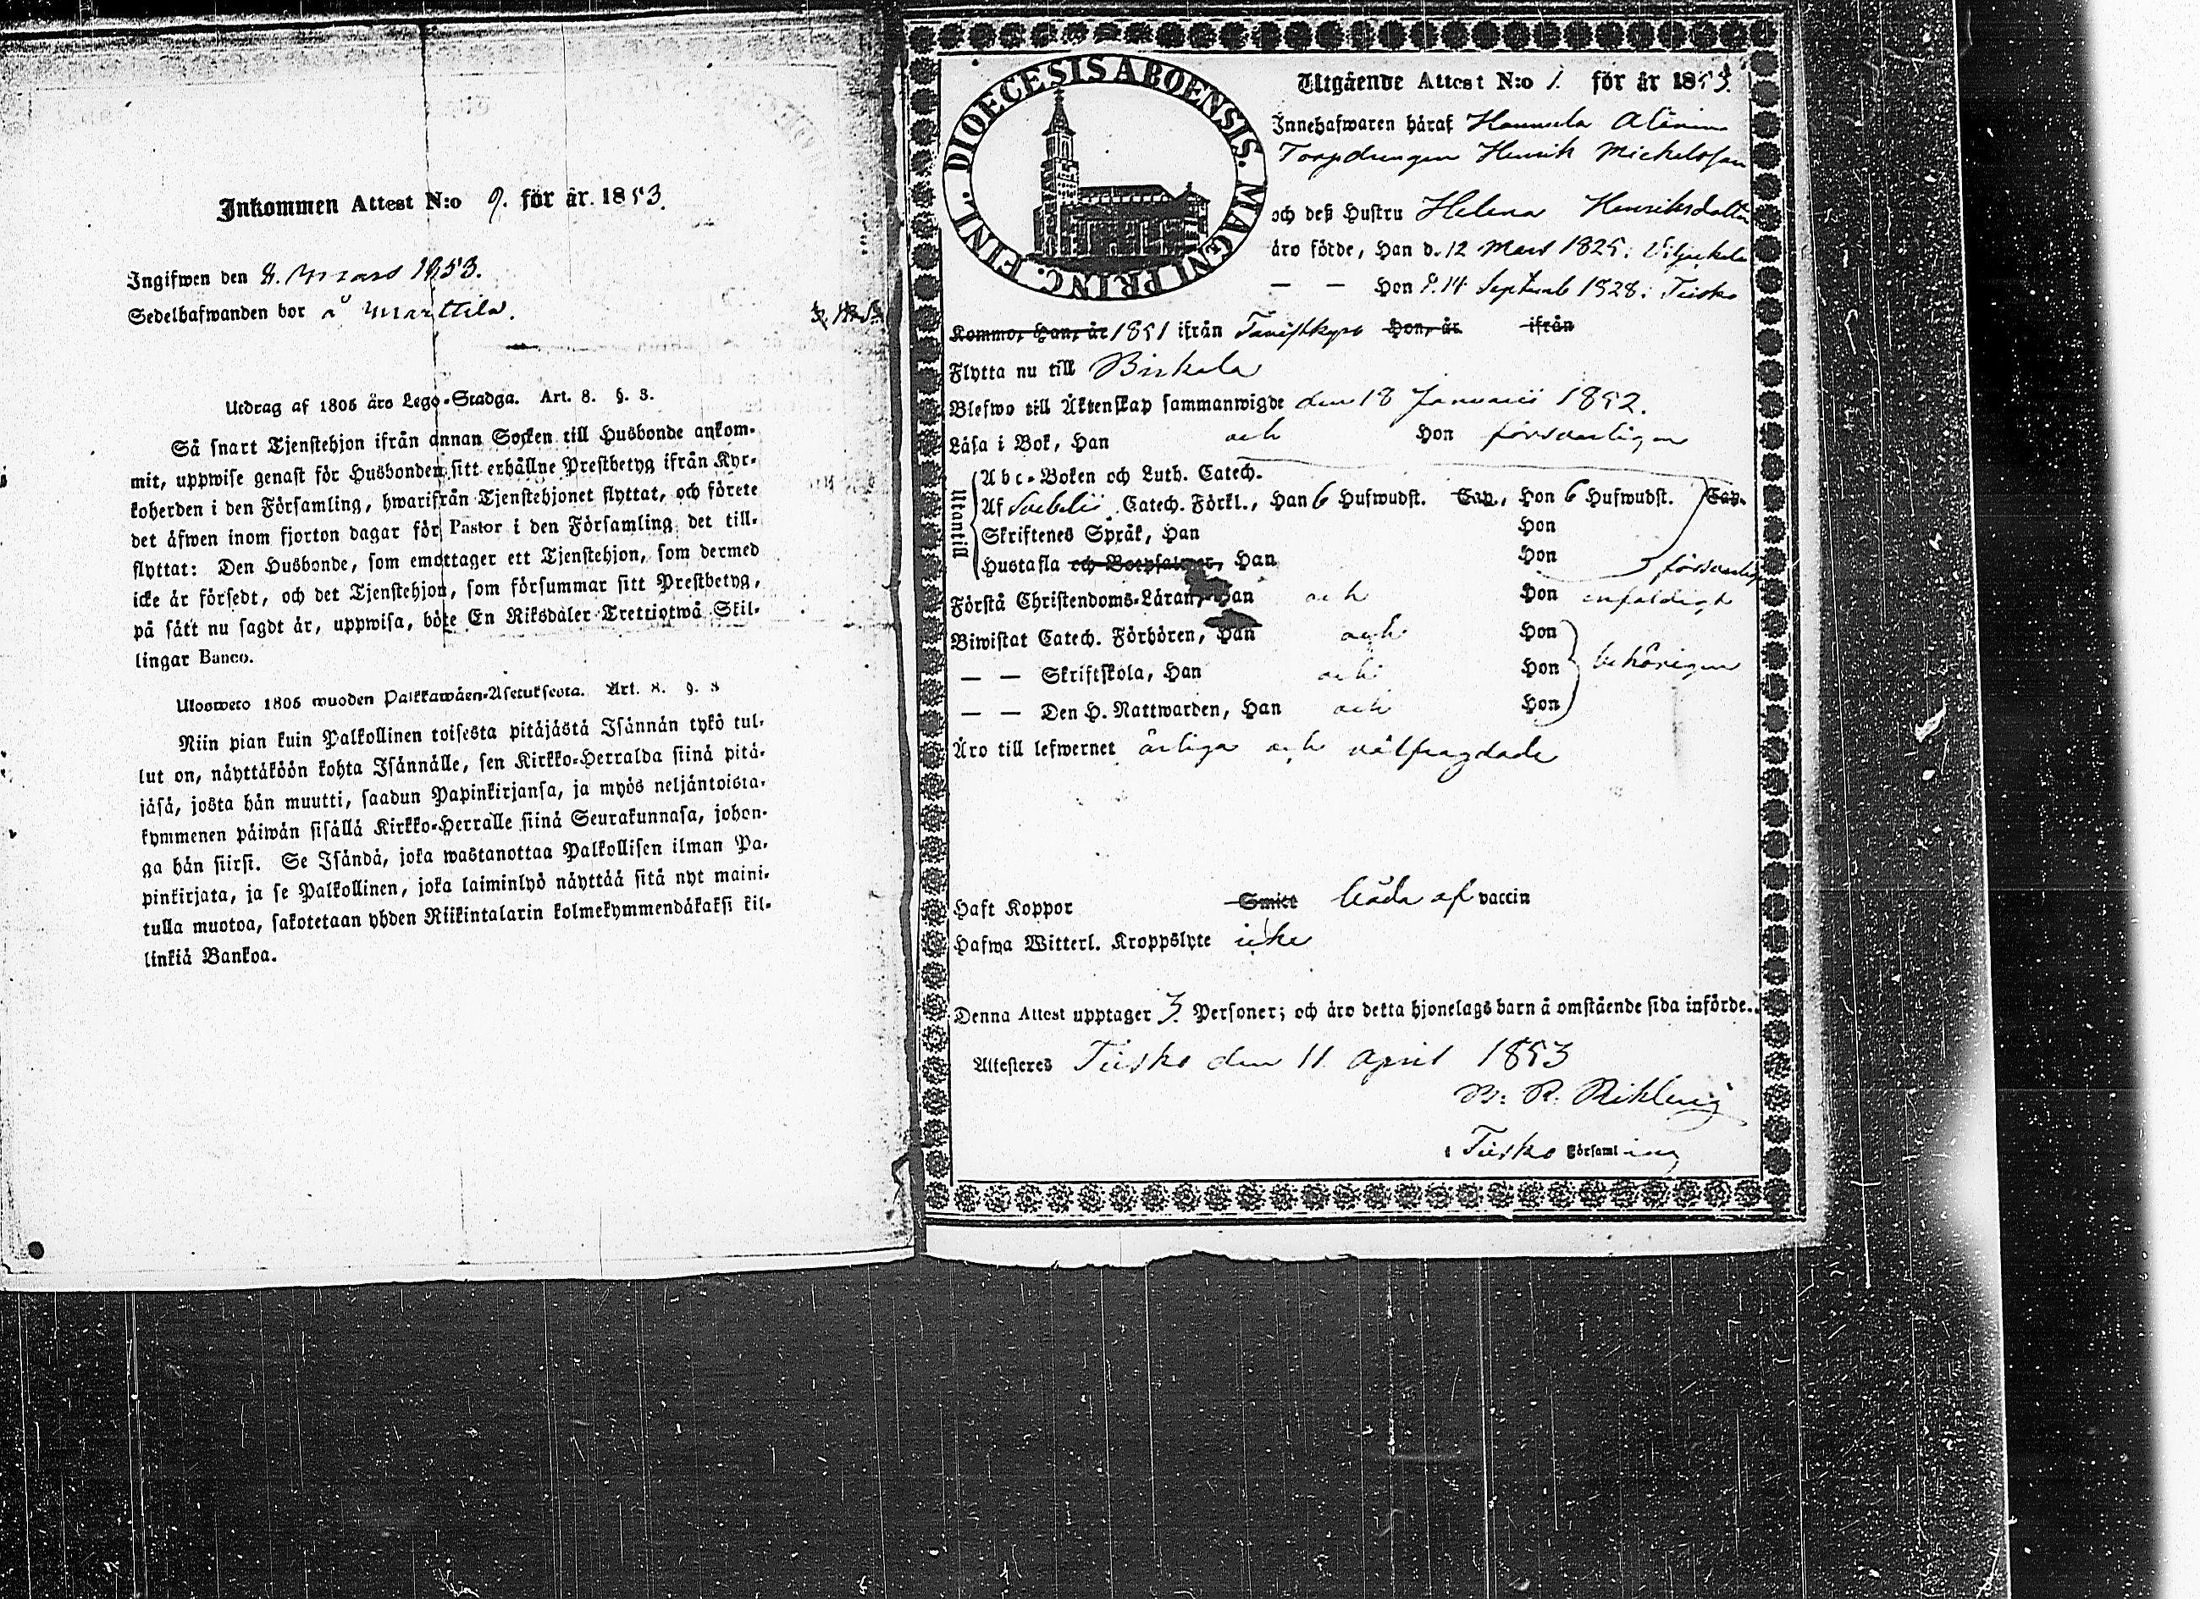 Inkommen Attest N:o 9. för år. 1853.
Ingifwen den 8. Mars 1853.
Sedelhafwanden bor å Marttila.
Utdrag af 1805 års Lego-Stadga. Art. 8. §. 3.
Så snart Tjenstehjon ifrån annan Socken till Husbonde ankom-
mit, uppwise genast för Husbonden sitt erhållne Prestbetyg ifrån Kyr-
koherden i den Församling, hwarifrån Tjenstehjonet flyttat, och förete
det äfwen inom fjorton dagar för Pastor i den Församling det till-
flyttat: Den Husbonde, som emottager ett Tjenstehjon, som dermed
icke är försedt, och det Tjenstehjon, som försummar sitt Prestbetyg,
på sätt nu sagdt är, uppwisa, böte En Riksdaler Trettiotwå Skil-
lingar Banco.
Ulosweto 1805 wuoden Palkkawäen-Asetuksesta. Art. 8. §. 3
Niin pian kuin Palkollinen toisesta pitäjästä Isännän tykö tul-
lut on, näyttäköön kohta Isännälle, sen Kirkko-Herralda siinä pitä-
jäsä, josta hän muutti, saadun Papinkirjansa, ja myös neljäntoista-
kymmenen päiwän sisällä Kirkko-Herralle siinä Seurakunnasa, johon-
ga hän siirsi. Se Isändä, joka wastanottaa Palkollisen ilman Pa-
pinkirjata, ja se Palkollinen, joka laiminlyö näyttää sitä nyt maini-
tulla muotoa, sakotetaan yhden Riikintalarin kolmekymmendäkaksi kil-
linkiä Bankoa.
DIOECESIS ABOENSIS. MAGNI PRINC. FINL.
Utgående Attest N:o 1. för år 1853.
Innehafwaren häraf Hannula
Torpdrengen Henrik Michelsson
och deß Hustru Helena Henriksdotter
äro födde, Han d. 12 Mars 1825: Viljakala
— — Hon d. 14 Septemb 1828: Teisko
Kommo, Han, år 1851 ifrån Tavastkyro Hon, år ifrån
Flytta nu till Birkala
Blefwo till Äktenskap sammanwigde den 18 Januarii 1852.
Läsa i Bok, Han och Hon försvarligen
Utantill
Abc-Boken och Luth. Catech.
Af Svebilii Catech. Förkl., Han 6 Hufwudst. Cap., Hon 6 Hufwudst. Cap.
Skriftenes Språk, Han Hon
Hustafla och Botpsalmer, Han Hon försvarlig
Förstå Christendoms-Läran, Han och Hon enfaldigt
Biwistat Catech. Förhören, Han och Hon
— — Skriftskola, Han och Hon behörigen
— — Den H. Nattwarden, Han och Hon
Äro till lefwernet ärliga och välfrägdade
Haft Koppor Smitt båda af vaccin
Hafwa Witterl. Kroppslyte icke
Denna Attest upptager 3. Personer; och äro detta hjonelags barn å omstående sida införde.
Attesteres Teisko den 11 April 1853
i Teisko Församling